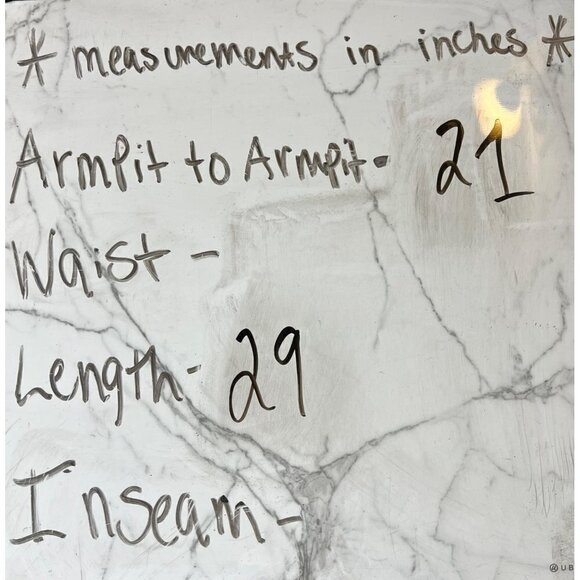 * measurements in inches *
Armpit to Armpit - 21
Waist -
Length - 29
Inseam -
UB